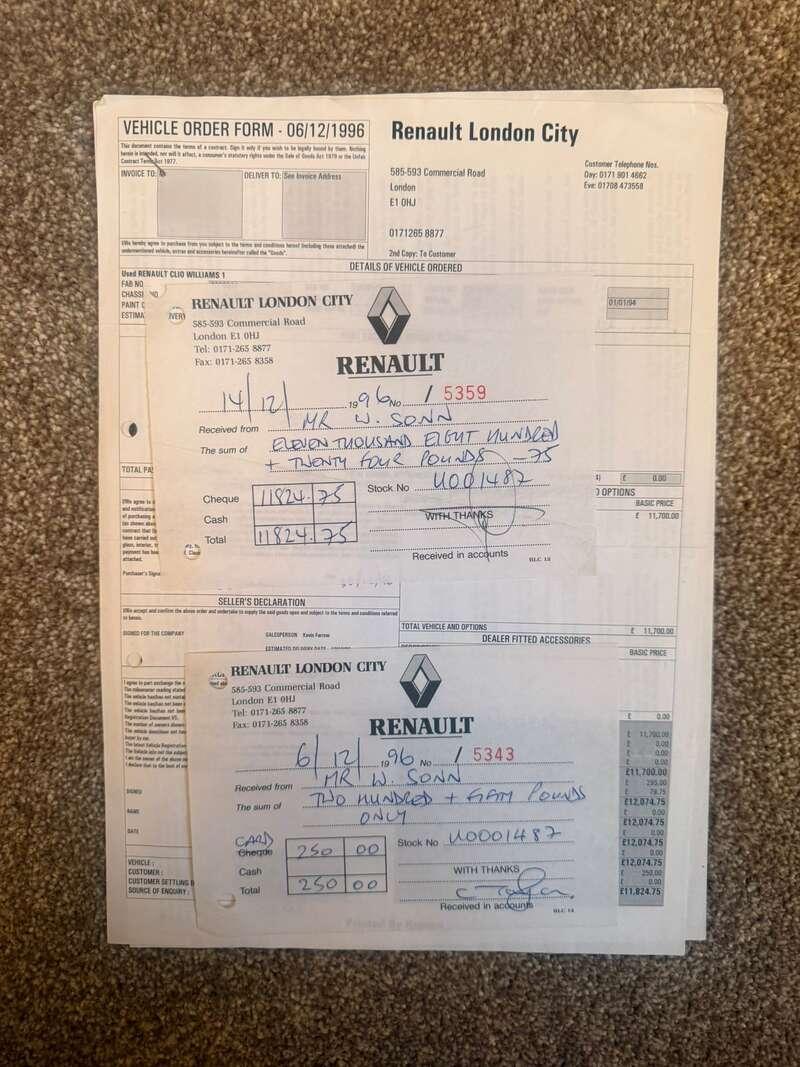 VEHICLE ORDER FORM - 06/12/1996
Renault London City
This document contains the terms of a contract. Sign it only if you wish to be legally bound by them. Nothing
herein is intended, nor will it affect, a consumer's statutory rights under the Sale of Goods Act 1979 or the Unfair
Contract Terms Act 1977.
INVOICE TO:
DELIVER TO: See Invoice Address
585-593 Commercial Road
London
E1 0HJ
0171265 8877
2nd Copy: To Customer
Customer Telephone Nos.
Day: 0171 901 4662
Eve: 01708 473558
I/We hereby agree to purchase from you subject to the terms and conditions hereof (including those attached) the
undermentioned vehicle, extras and accessories hereinafter called the "Goods".
DETAILS OF VEHICLE ORDERED
Used RENAULT CLIO WILLIAMS 1
FAB NO
CHASSI NO
PAINT
ESTIMA
IVERY
01/01/94
RENAULT LONDON CITY
585-593 Commercial Road
London E1 0HJ
Tel: 0171-265 8877
Fax: 0171-265 8358
RENAULT
14/12/ 1996 No / 5359
Received from MR W. SONN
The sum of ELEVEN THOUSAND EIGHT HUNDRED
+ TWENTY FOUR POUNDS - 75
Stock No U001487
Cheque 11824. 75
Cash
Total 11824. 75
WITH THANKS
Received in accounts
RLC 13
TOTAL PA
£ 0.00
OPTIONS
BASIC PRICE
£ 11,700.00
I/We agree to
and notification
of purchasing
(as shown
contract that
have carried out
glass, interior,
payment has
attached.
Purchaser's Signa
SELLER'S DECLARATION
I/We accept and confirm the above order and undertake to supply the said goods upon and subject to the terms and conditions referred
to herein.
SIGNED FOR THE COMPANY
SALESPERSON Kevin Farrow
ESTIMATED DELIVERY DATE
TOTAL VEHICLE AND OPTIONS £ 11,700.00
DEALER FITTED ACCESSORIES
BASIC PRICE
I agree to part exchange the
The odometer reading stated
The vehicle has/has not
The vehicle has/has not been
The vehicle has/has not been
Registration Document V5.
The number of owners shown
The vehicle does/does not
The latest Vehicle Registration
I am the owner of the above
I declare that to the best of
SIGNED
NAME
DATE
VEHICLE :
CUSTOMER :
CUSTOMER SETTLING
SOURCE OF ENQUIRY :
RENAULT LONDON CITY
585-593 Commercial Road
London E1 0HJ
Tel: 0171-265 8877
Fax: 0171-265 8358
RENAULT
6/12/ 1996 No / 5343
Received from MR W. SONN
The sum of TWO HUNDRED + FIFTY POUNDS
ONLY
Stock No U0001487
CARD
Cheque 250 00
Cash
Total 250 00
WITH THANKS
Received in accounts
RLC 13
£ 0.00
£ 11,700.00
£ 0.00
£ 0.00
£ 0.00
£11,700.00
£ 295.00
£ 79.75
£12,074.75
£ 0.00
£12,074.75
£ 0.00
£12,074.75
£ 250.00
£ 0.00
£11,824.75